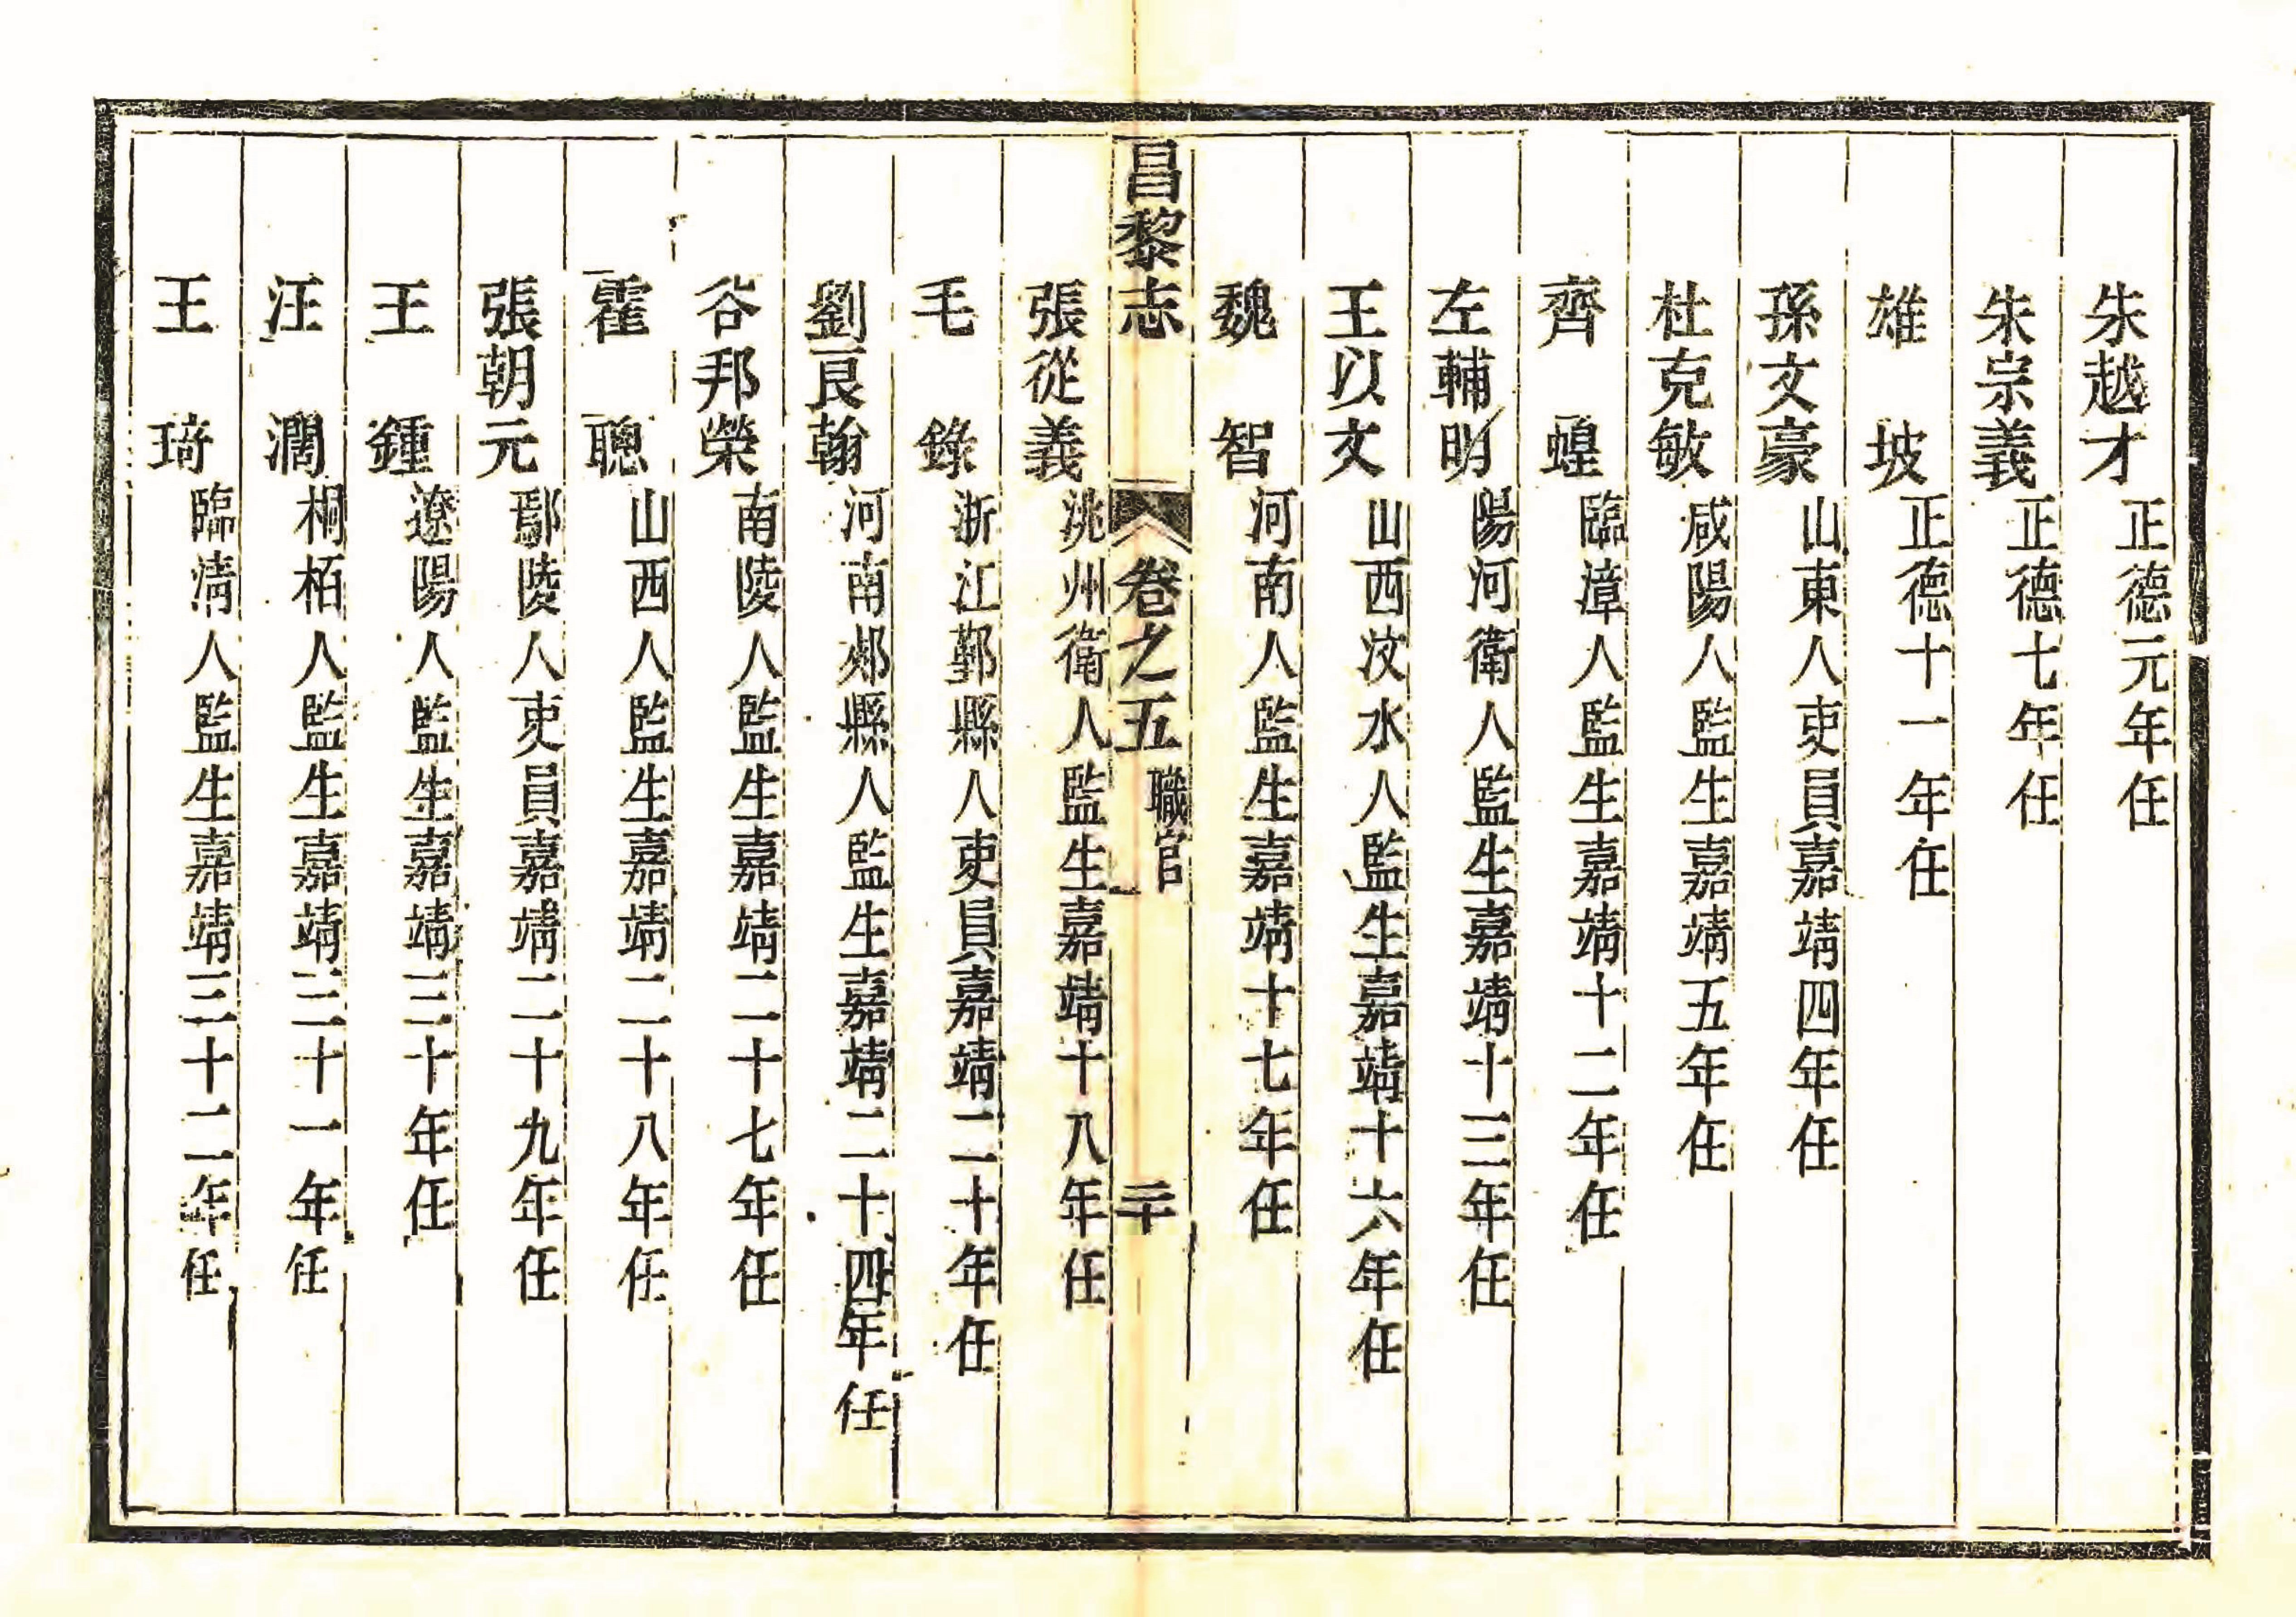 朱越才 正德元年任
朱宗義 正德七年任
雄坡 正德十一年任
孫文豪 山東人吏員嘉靖四年任
杜克敏 咸陽人監生嘉靖五年任
齊蝗 臨漳人監生嘉靖十二年任
左輔明 陽河衛人監生嘉靖十三年任
王以文 山西汶水人監生嘉靖十六年任
魏智 河南人監生嘉靖十七年任
昌黎志 卷之五 職官 二十
張從義 洮州衛人監生嘉靖十八年任
毛錄 浙江鄞縣人吏員嘉靖二十年任
劉良翰 河南郟縣人監生嘉靖二十四年任
谷邦榮 南陵人監生嘉靖二十七年任
霍聰 山西人監生嘉靖二十八年任
張朝元 鄢陵人吏員嘉靖二十九年任
王鍾 遼陽人監生嘉靖三十年任
汪濶 桐栢人監生嘉靖三十一年任
王琦 臨清人監生嘉靖三十二年任